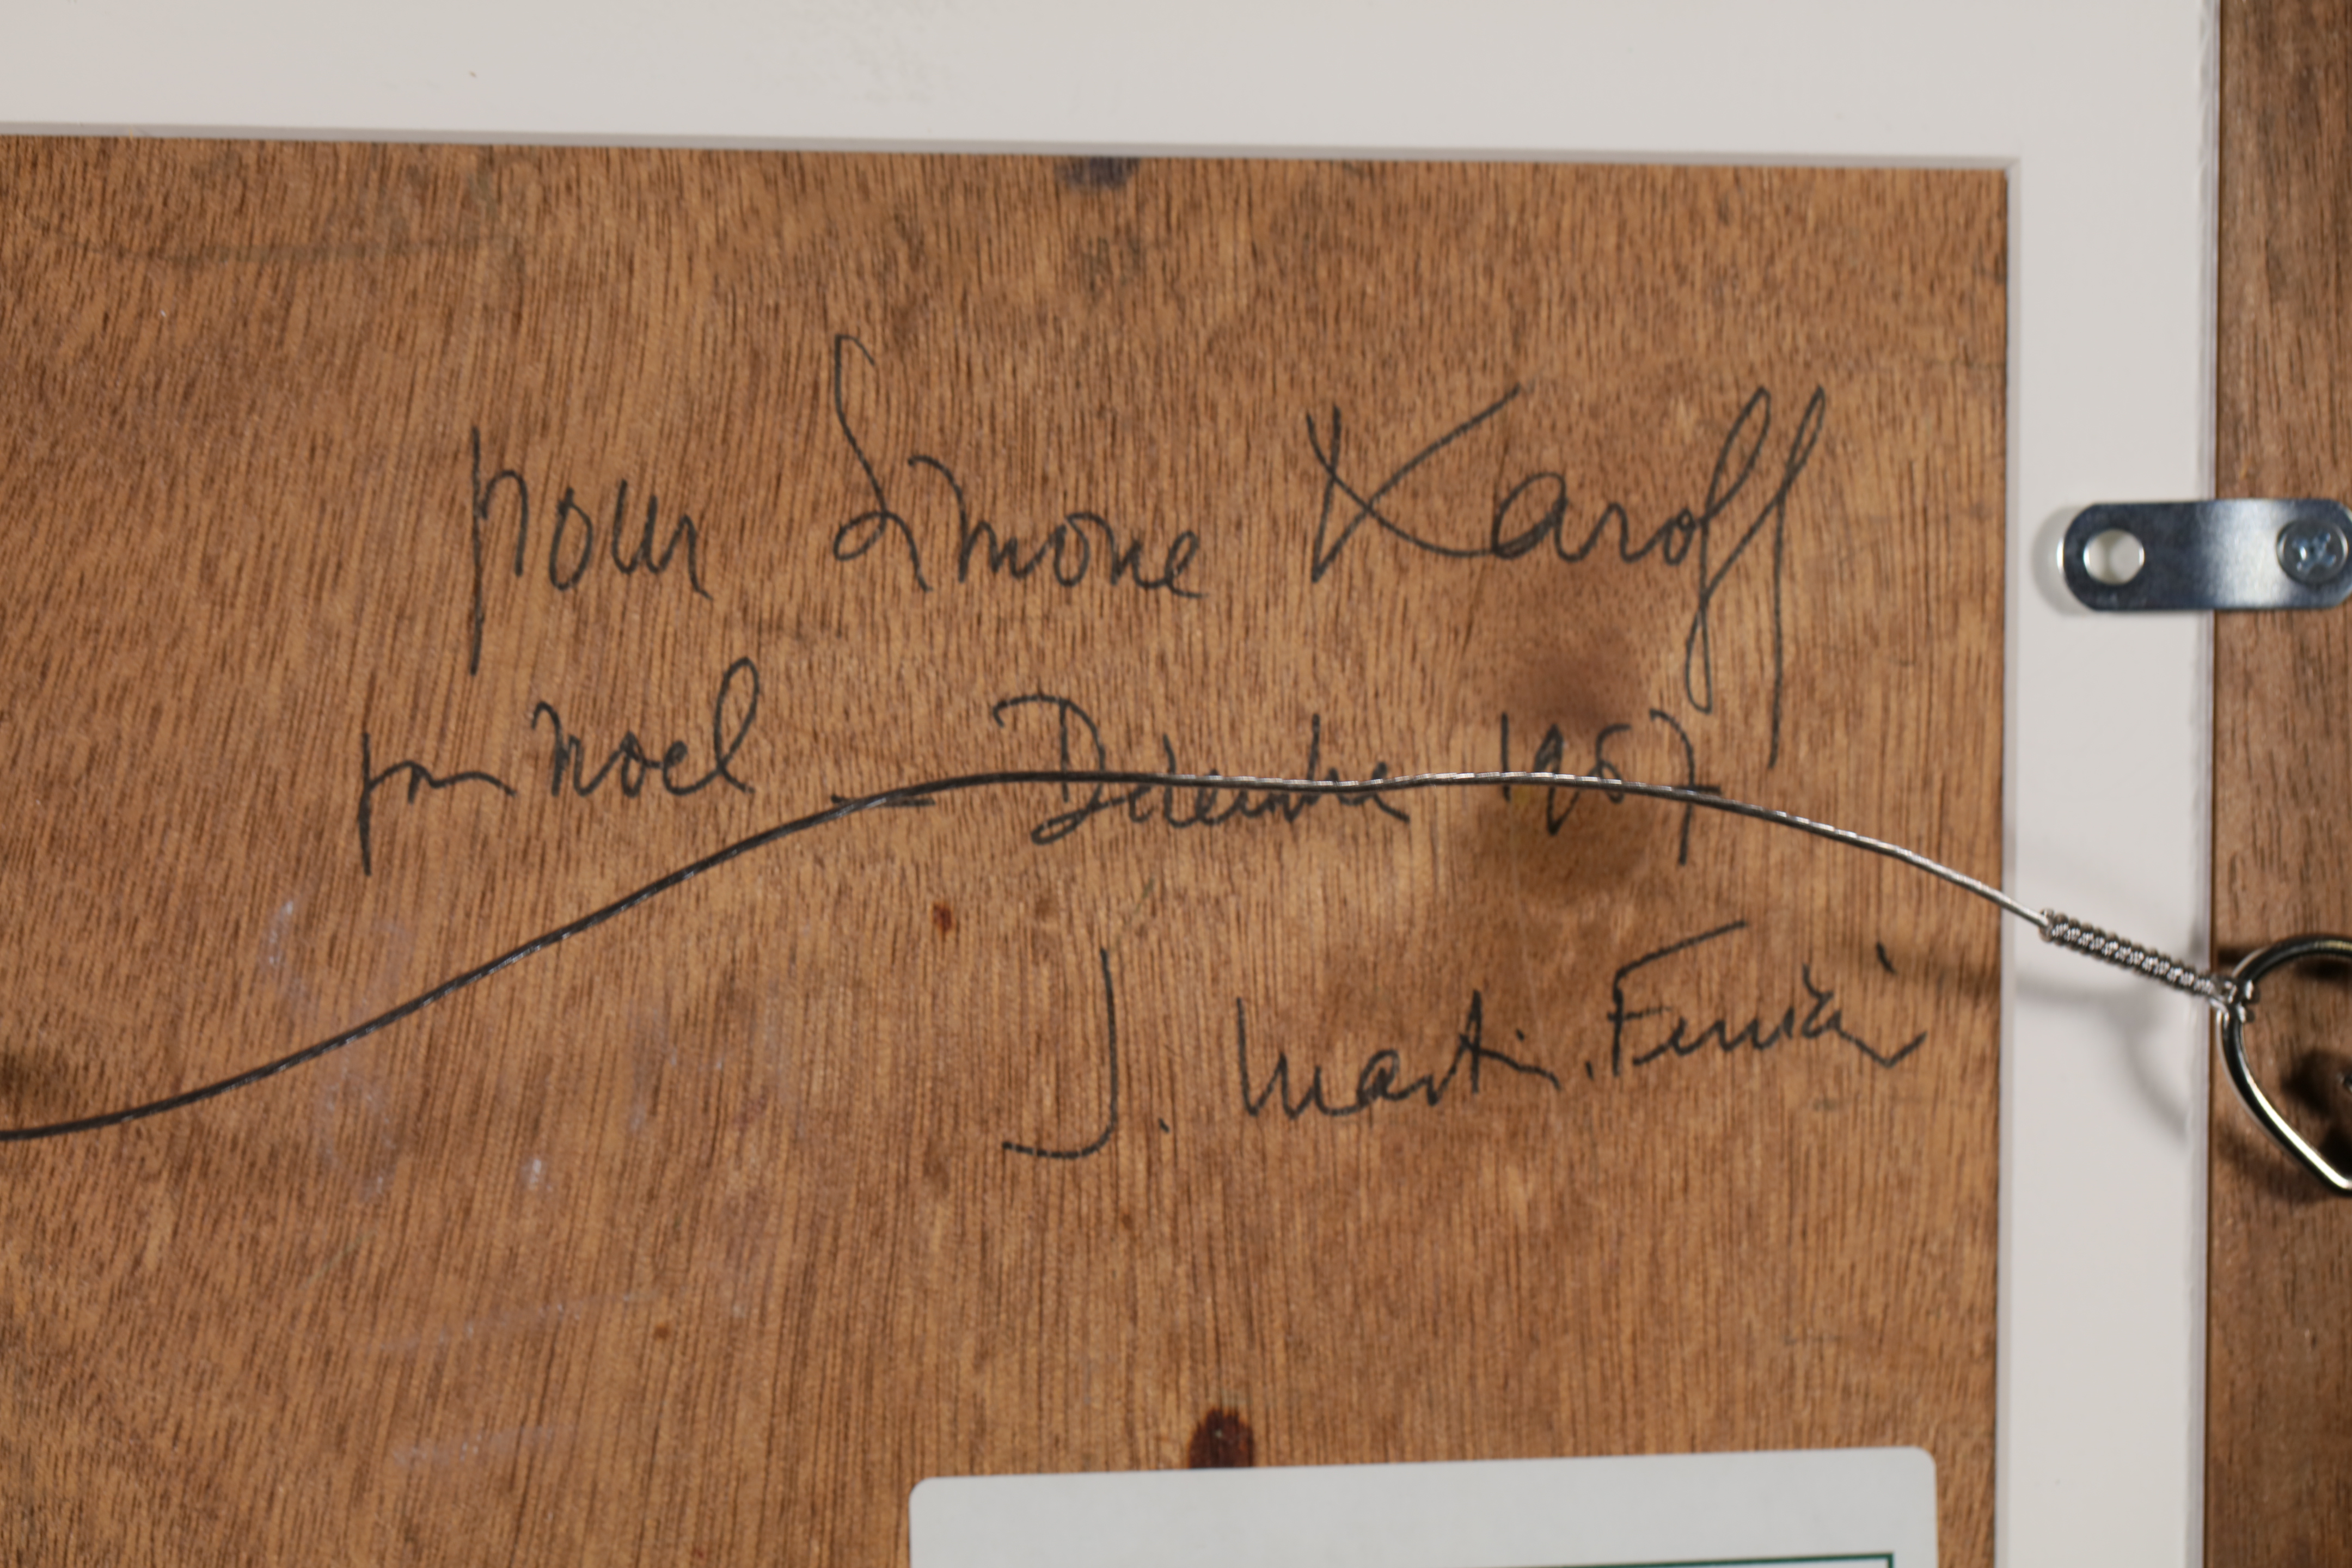 pour Simone Karoff
pour Noel — Décembre 1967
J. Martin-Ferrières